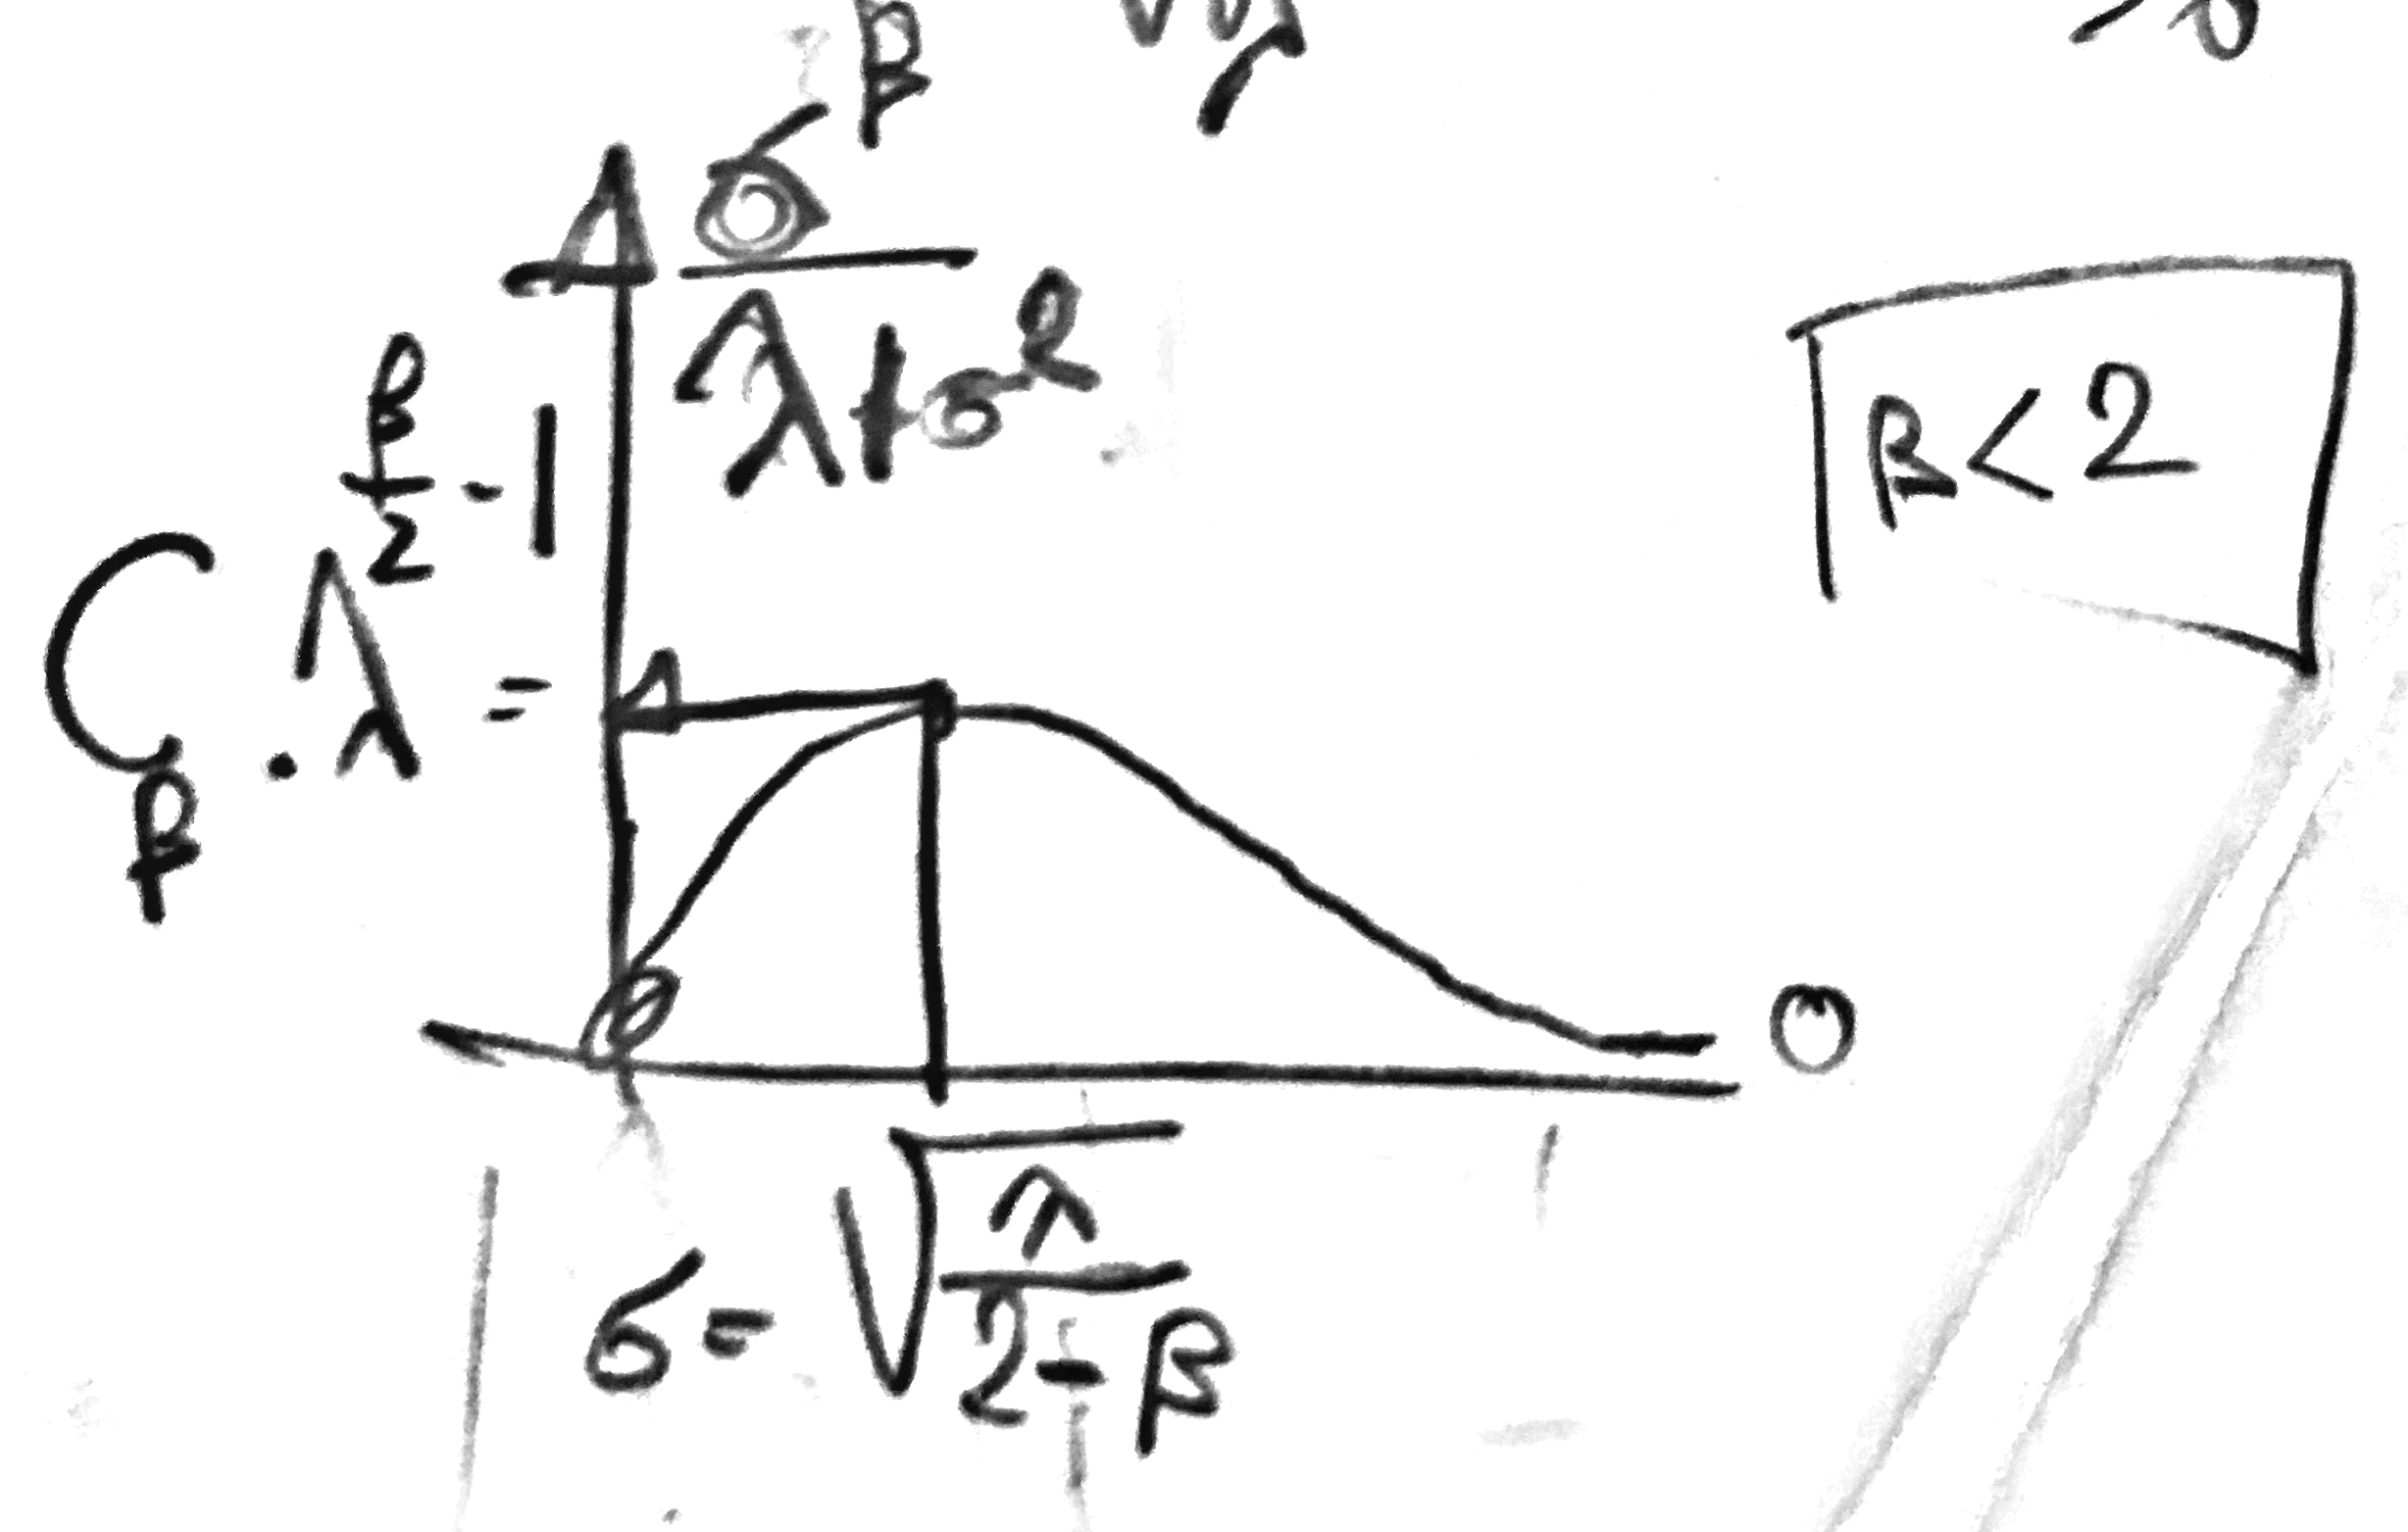 σ^β / (λ+σ^2)
β < 2
C_β · λ^(β/2 - 1) =
0
0
σ = √(π / (2 - β))